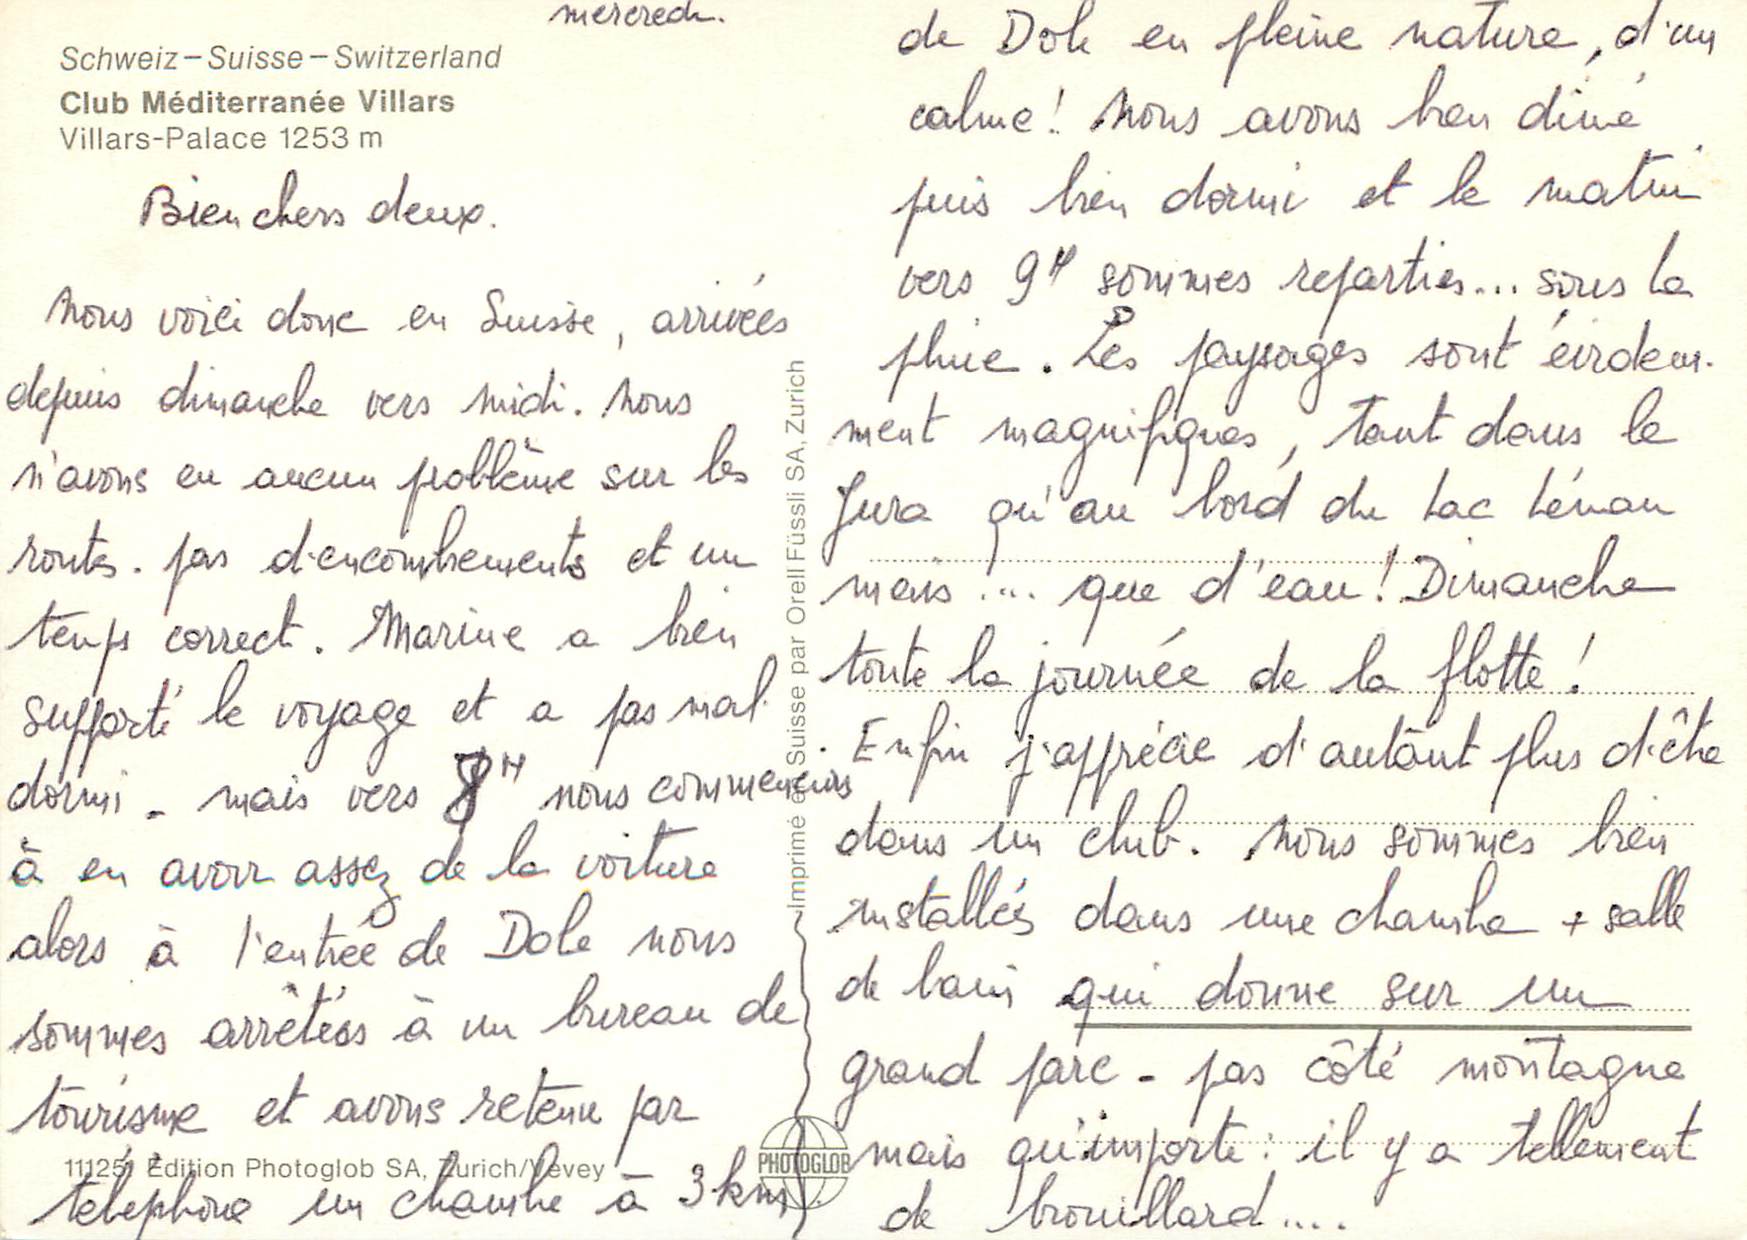 mercredi.
Schweiz–Suisse–Switzerland
Club Méditerranée Villars
Villars-Palace 1253 m
Bien chers deux.
Nous voici donc en Suisse, arrivées
depuis dimanche vers midi. Nous
n'avons eu aucun problème sur les
routes. pas d'encombrements et un
temps correct. Marine a bien
supporté le voyage et a pas mal
dormi - mais vers 8H nous commencions
à en avoir assez de la voiture
alors à l'entrée de Dole nous
sommes arrêtées à un bureau de
tourisme et avons retenu par
téléphone un chambre à 3 km
11125 Edition Photoglob SA, Zurich/Vevey
Imprimé en Suisse par Orell Füssli SA, Zurich
PHOTOGLOB
de Dole en pleine nature, d'un
calme! Nous avons bien diné
puis bien dormi et le matin
vers 9H sommes reparties... sous la
pluie. Les paysages sont évidem-
ment magnifiques, tant dans le
Jura qu'au bord du Lac Léman
mais .... que d'eau! Dimanche
toute la journée de la flotte!
Enfin j'apprécie d'autant plus d'être
dans un club. Nous sommes bien
installés dans une chambre + salle
de bain qui donne sur un
grand parc - pas côté montagne
mais qu'importe: il y a tellement
de brouillard....